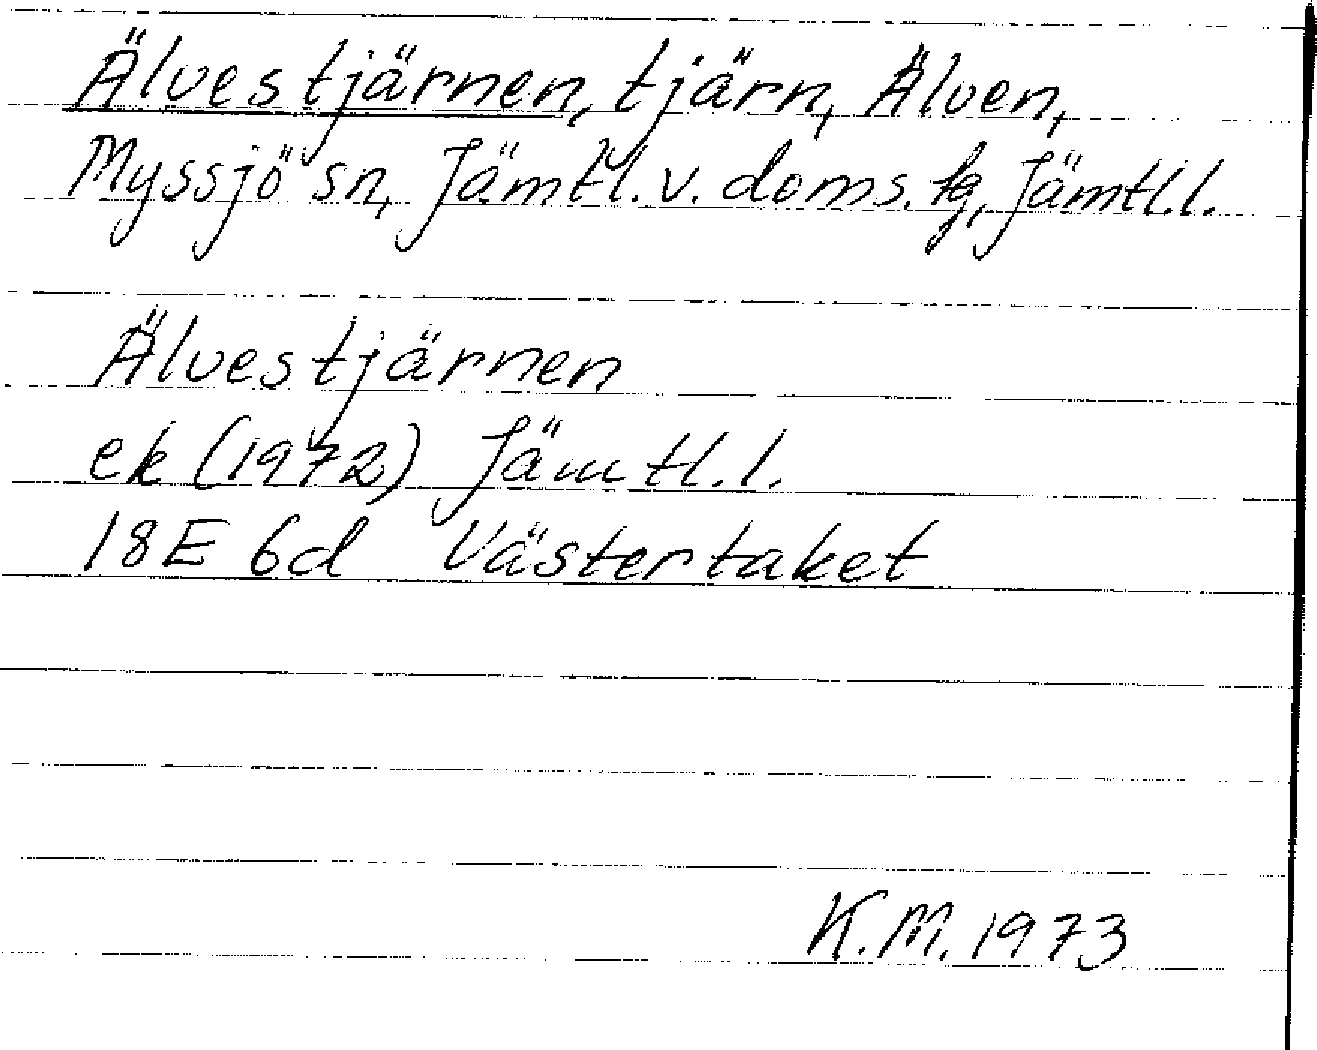 Älvestjärnen, tjärn, Älven,
Myssjö sn, Jämtl. v. doms. tg, Jämtl.l.
Älvestjärnen
ek (1972) Jämtl.l.
18E 6d Västertaket
K.M. 1973